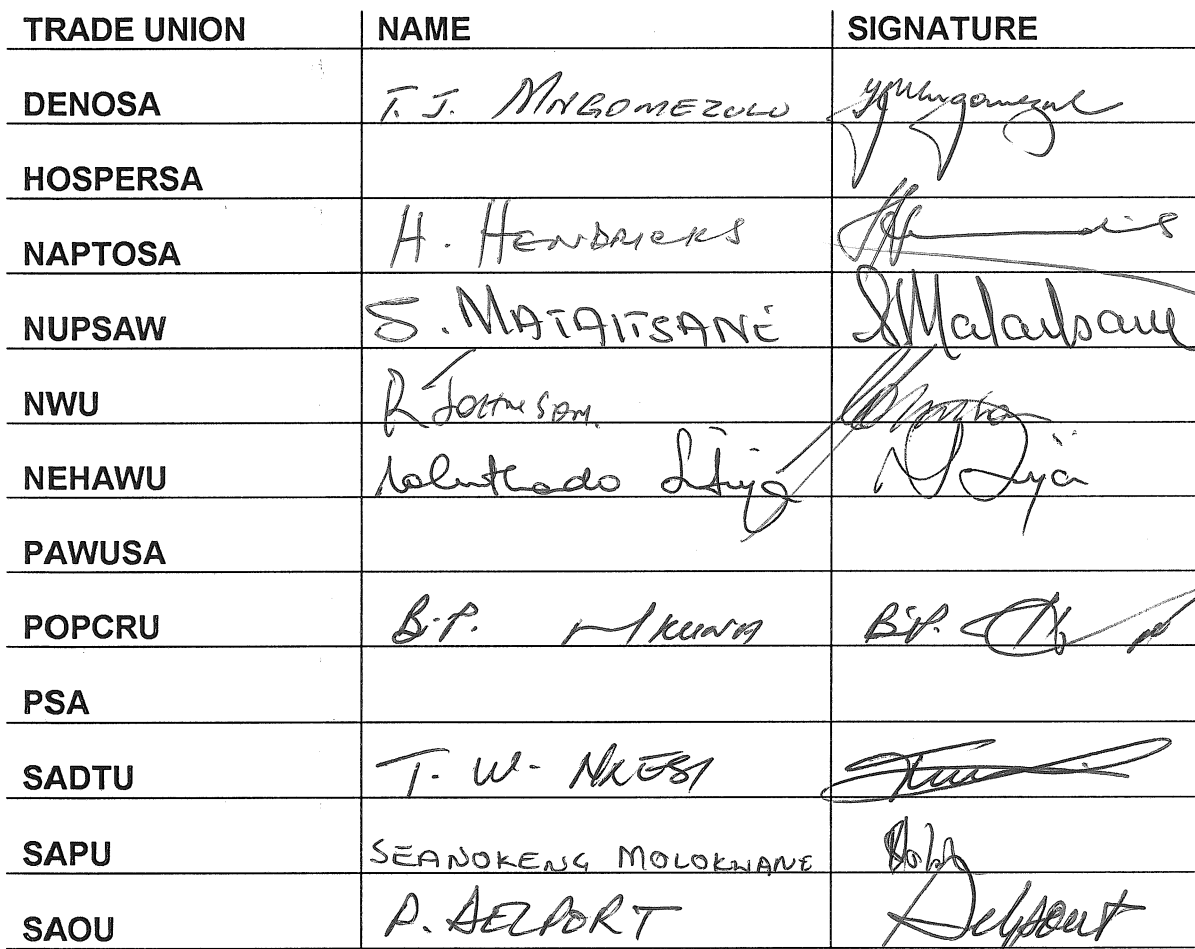 TRADE UNION NAME SIGNATURE
DENOSA T. J. MNGOMEZULU
HOSPERSA
NAPTOSA H. HENDRICKS
NUPSAW S. MATAITSANE S Mataitsane
NWU R JOHNSON.
NEHAWU
PAWUSA
POPCRU B.P. MKUNA B.P.
PSA
SADTU T. W. NKESI
SAPU SEANOKENG MOLOKWANE
SAOU P. DELPORT Delport